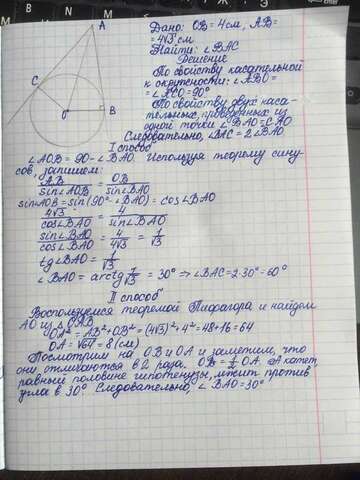 A
C
O
B
Дано: OB = 4см, AB =
= 4√3 см
Найти: ∠BAC
Решение
По свойству касательной
к окружности: ∠ABO =
= ∠ACO = 90°
По свойству двух каса-
тельных, проведенных из
одной точки ∠BAO = CAO
Следовательно, ∠BAC = 2∠BAO
I способ
∠AOB = 90 - ∠BAO. Используя теорему сину-
сов, запишем:
AB/sin∠AOB = OB/sin∠BAO
sinAOB = sin(90° - ∠BAO) = cos∠BAO
4√3/cos∠BAO = 4/sin∠BAO
sin∠BAO/cos∠BAO = 4/4√3 = 1/√3
tg∠BAO = 1/√3
∠BAO = arctg 1/√3 = 30° ⇒ ∠BAC = 2·30 = 60°
II способ
Воспользуемся теоремой Пифагора и найдем
AO из △OAB
OA² = AB² + OB² = (4√3)² + 4² = 48 + 16 = 64
OA = √64 = 8 (см)
Посмотрим на OB и OA и заметим, что
они отличаются в 2 раза. OB = 1/2 OA. А катет,
равный половине гипотенузы, лежит против
угла в 30°. Следовательно, ∠BAO = 30°